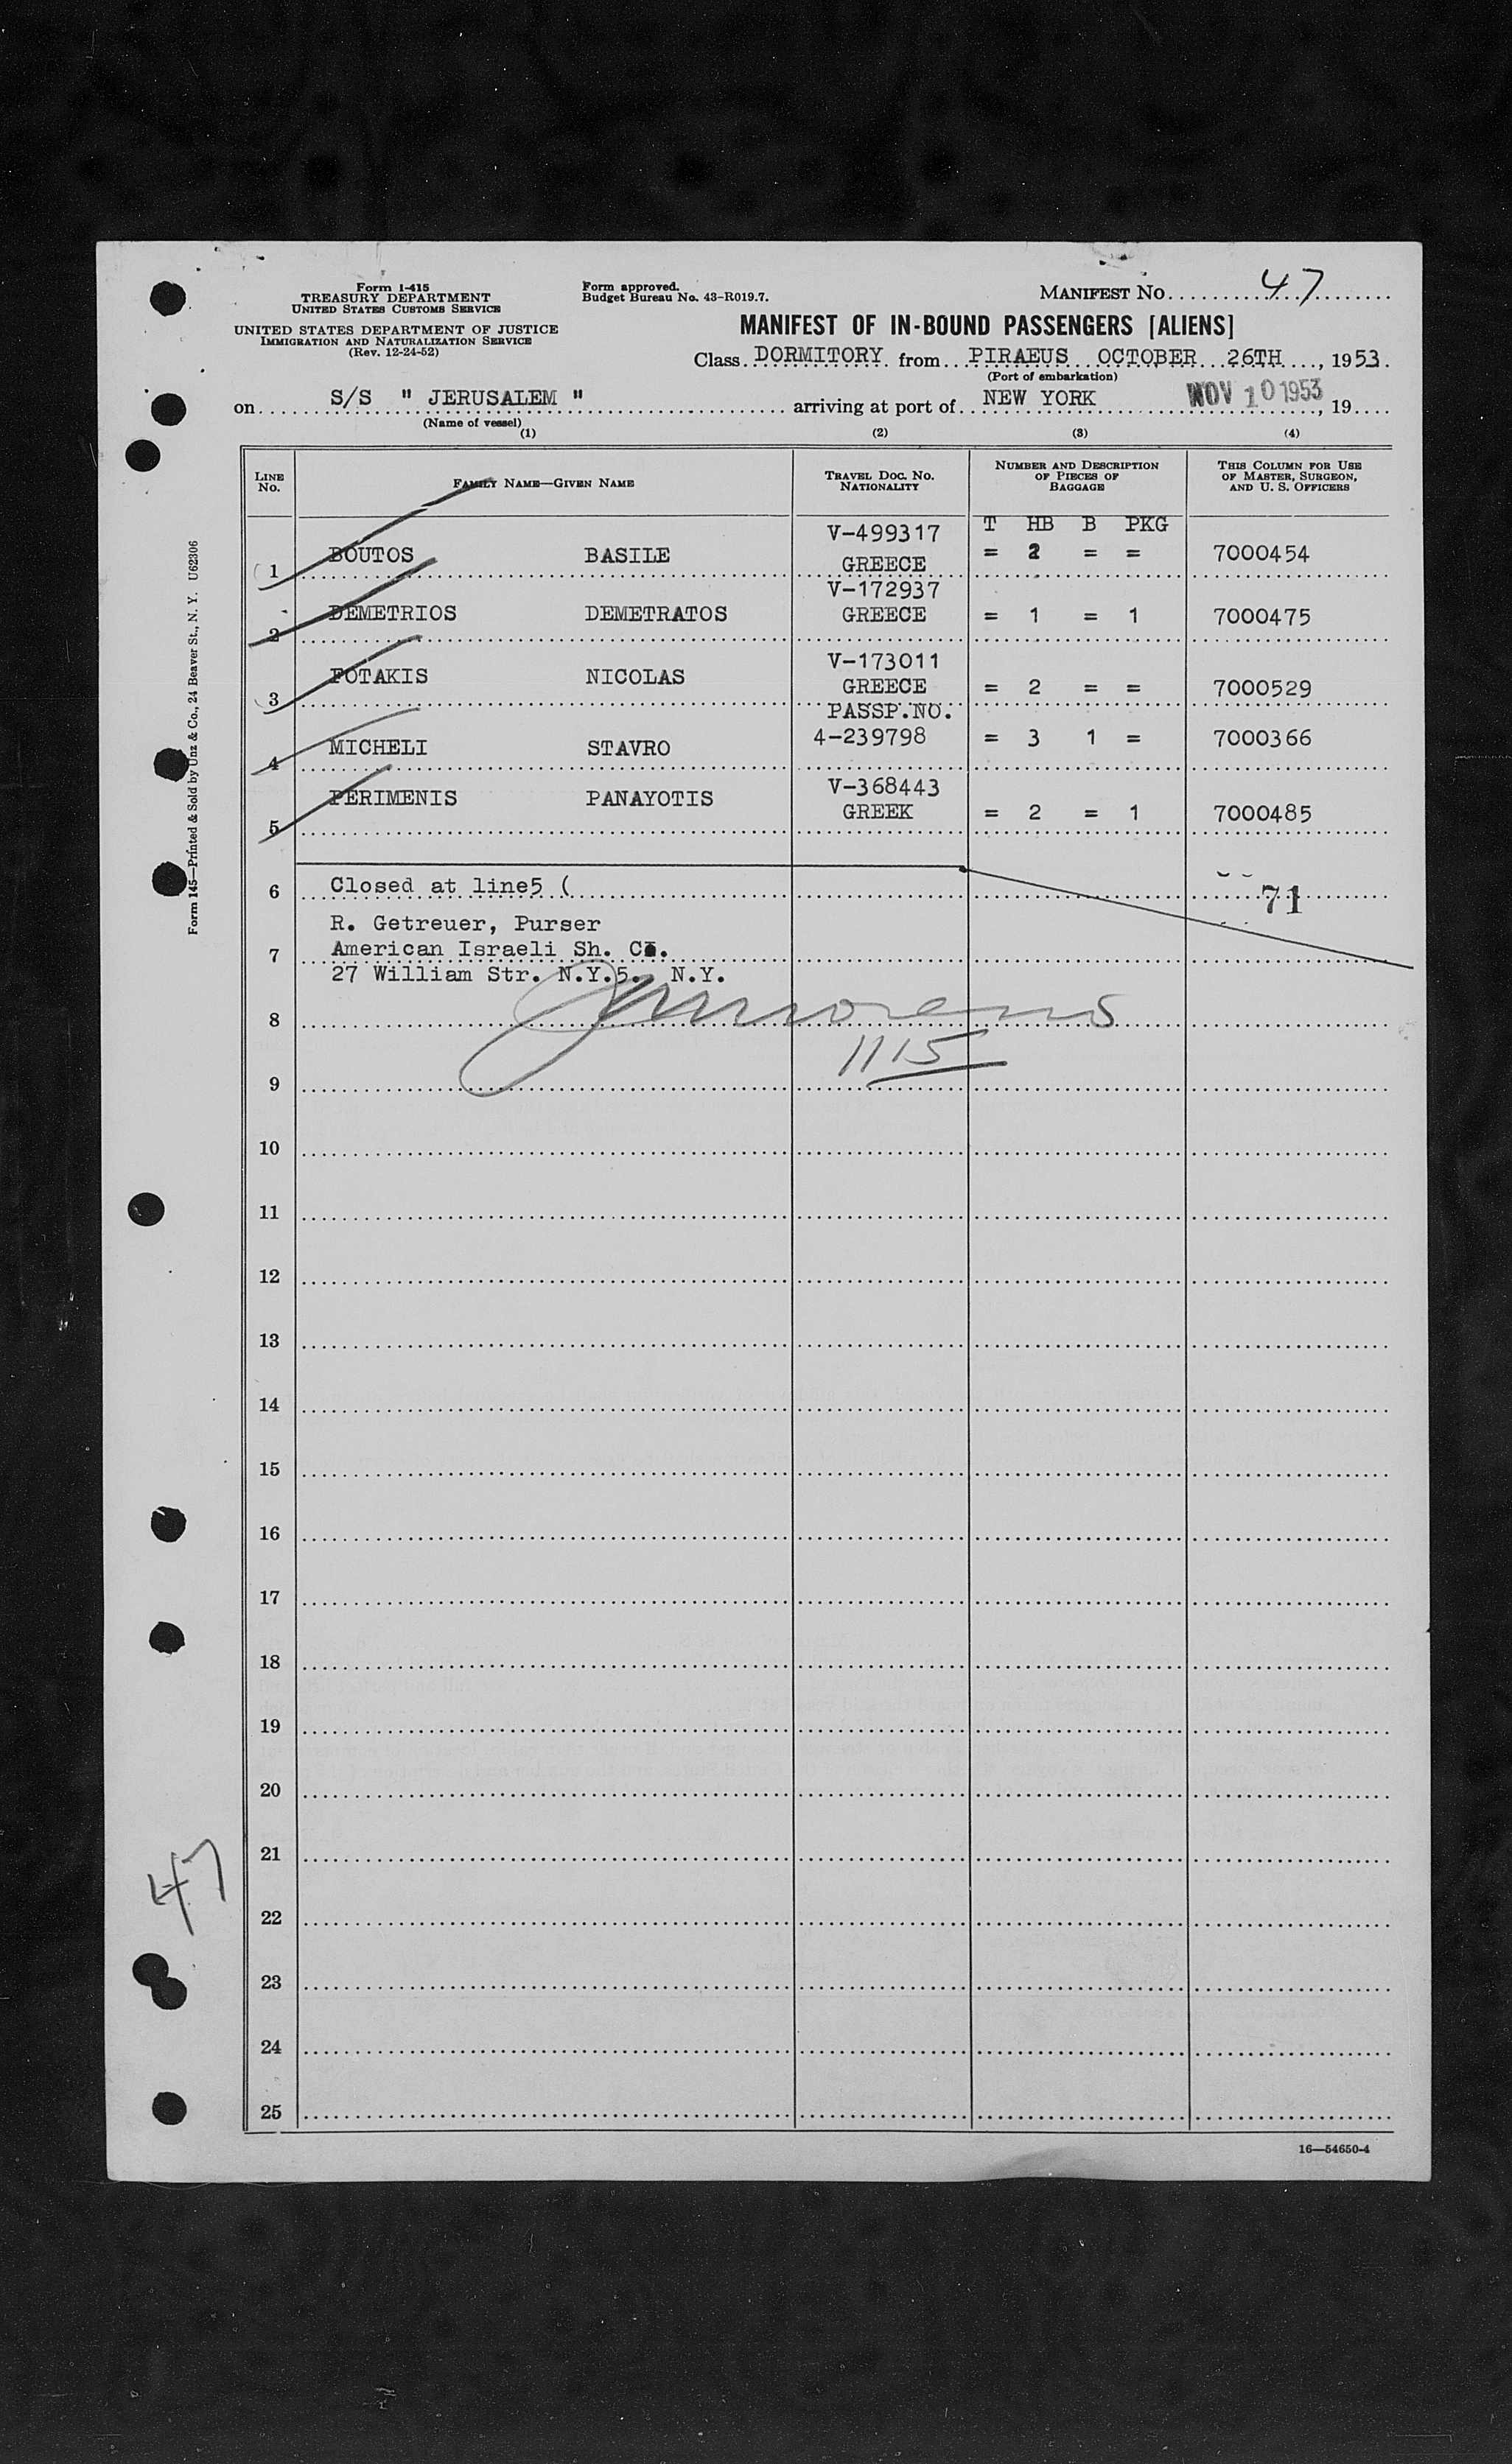 Form I-415
TREASURY DEPARTMENT
UNITED STATES CUSTOMS SERVICE
UNITED STATES DEPARTMENT OF JUSTICE
IMMIGRATION AND NATURALIZATION SERVICE
(Rev. 12-24-52)
Form approved.
Budget Bureau No. 43-R019.7.
MANIFEST NO. 47
MANIFEST OF IN-BOUND PASSENGERS [ALIENS]
Class DORMITORY from PIRAEUS OCTOBER 26TH, 1953.
(Port of embarkation)
on S/S " JERUSALEM " arriving at port of NEW YORK NOV 10 1953, 19
(Name of vessel)
(1) (2) (3) (4)
LINE No. FAMILY NAME—GIVEN NAME TRAVEL DOC. NO. NATIONALITY NUMBER AND DESCRIPTION OF PIECES OF BAGGAGE THIS COLUMN FOR USE OF MASTER, SURGEON, AND U. S. OFFICERS
T HB B PKG
V-499317
1 BOUTOS BASILE GREECE = 2 = = 7000454
V-172937
2 DEMETRIOS DEMETRATOS GREECE = 1 = 1 7000475
V-173011
3 FOTAKIS NICOLAS GREECE = 2 = = 7000529
PASSP.NO.
4 MICHELI STAVRO 4-239798 = 3 1 = 7000366
V-368443
5 PERIMENIS PANAYOTIS GREEK = 2 = 1 7000485
6 Closed at line5 ( 71
R. Getreuer, Purser
7 American Israeli Sh. Co.
27 William Str. N.Y.5. N.Y.
8
1115
9
10
11
12
13
14
15
16
17
18
19
20
21
22
23
24
25
16—54650-4
Form 145—Printed & Sold by Unz & Co., 24 Beaver St., N. Y. U62306
47